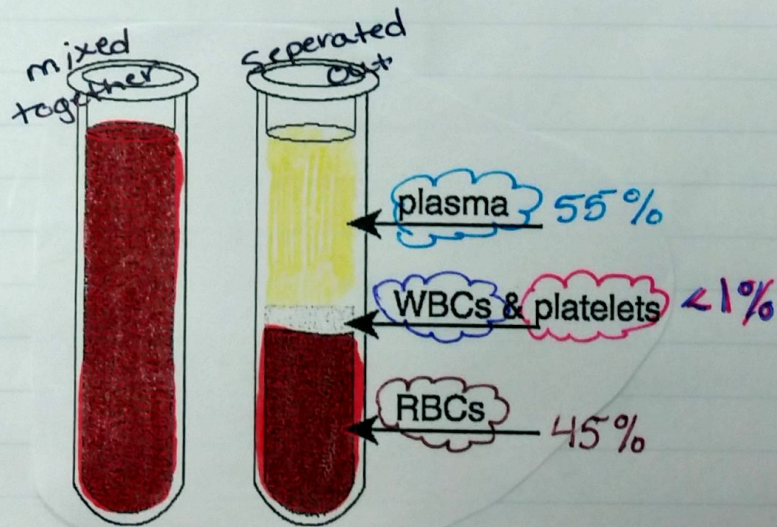 mixed
together
seperated
out
plasma 55%
WBCs & platelets <1%
RBCs 45%